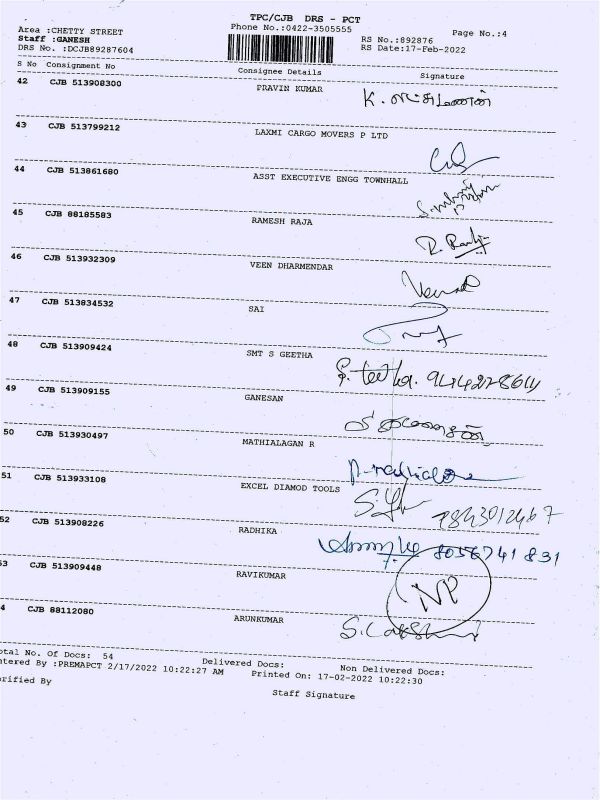 TPC/CJB DRS - PCT
Area :CHETTY STREET
Phone No.:0422-3505555
Page No.:4
Staff :GANESH
RS No.:892876
DRS No. :DCJB89287604
RS Date:17-Feb-2022
S No Consignment No Consignee Details Signature
42 CJB 513908300 PRAVIN KUMAR
43 CJB 513799212 LAXMI CARGO MOVERS P LTD
44 CJB 513861680 ASST EXECUTIVE ENGG TOWNHALL
45 CJB 88185583 RAMESH RAJA
46 CJB 513932309 VEEN DHARMENDAR
47 CJB 513834532 SAI
48 CJB 513909424 SMT S GEETHA
49 CJB 513909155 GANESAN
50 CJB 513930497 MATHIALAGAN R
51 CJB 513933108 EXCEL DIAMOD TOOLS
52 CJB 513908226 RADHIKA
8056741831
53 CJB 513909448 RAVIKUMAR
NP
4 CJB 88112080 ARUNKUMAR
otal No. Of Docs: 54 Delivered Docs: Non Delivered Docs:
ntered By :PREMAPCT 2/17/2022 10:22:27 AM Printed On: 17-02-2022 10:22:30
erified By Staff Signature